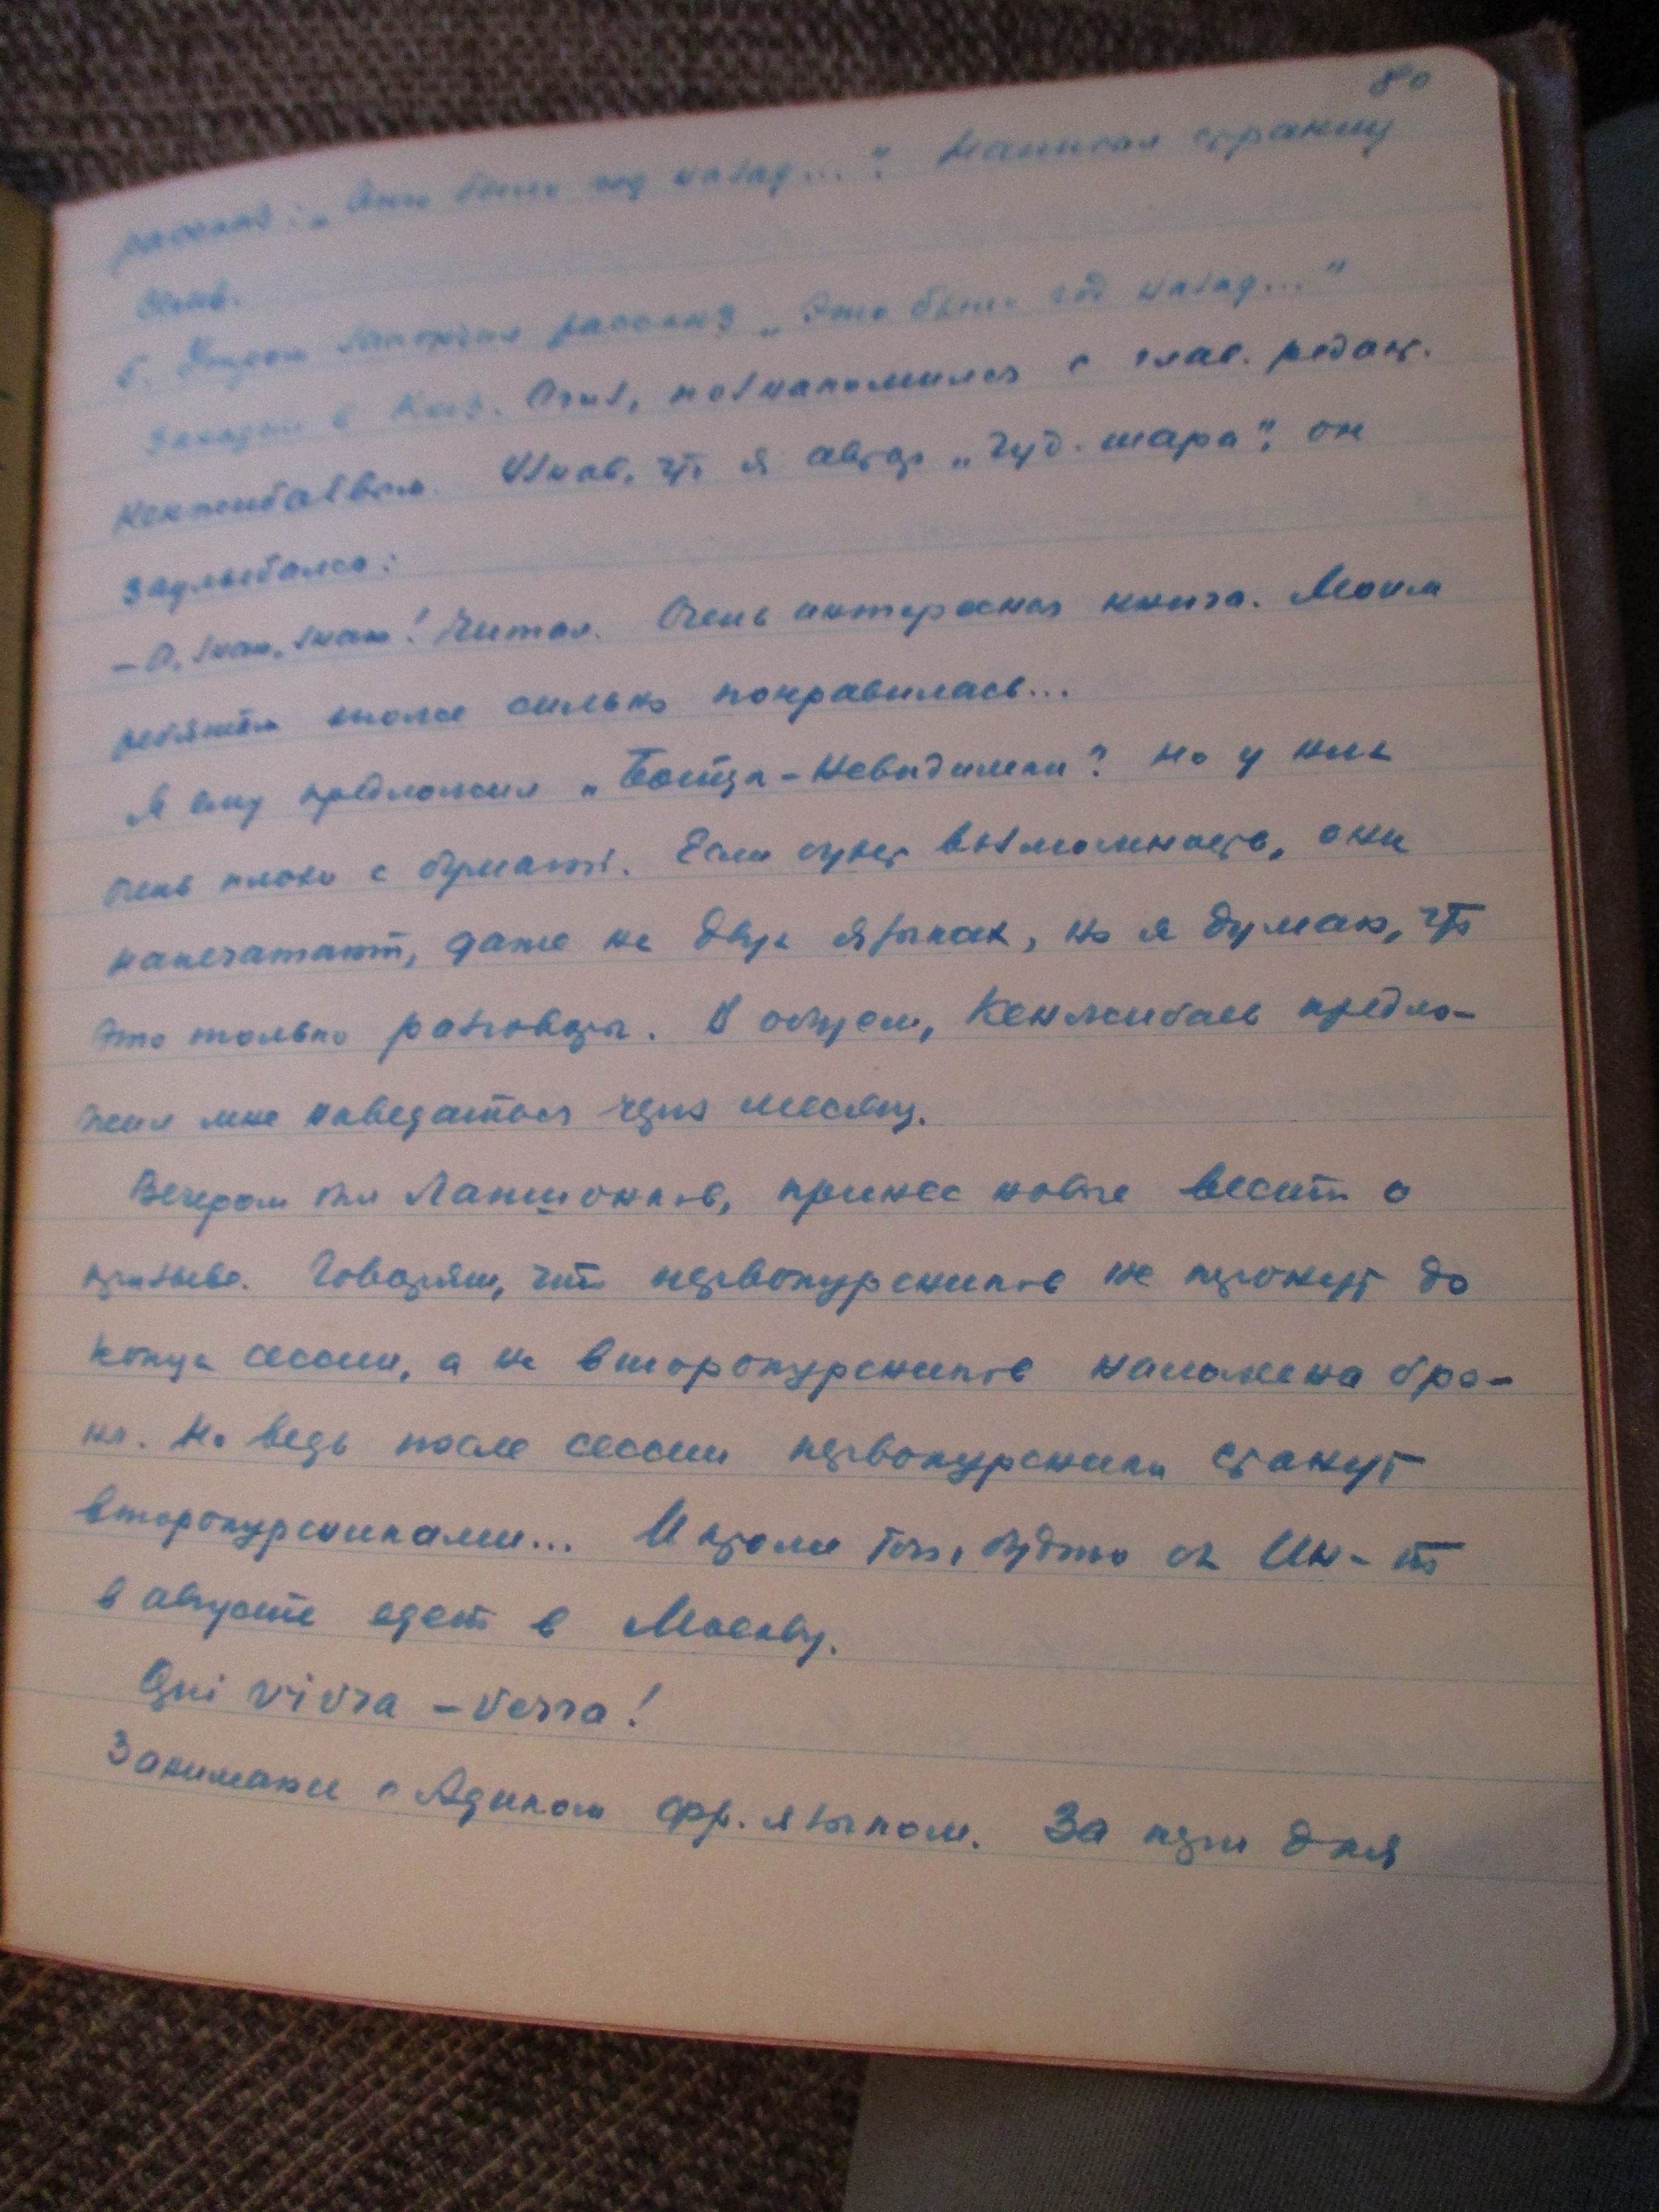 80
рассказ: „Это было год назад...". Написал страниц
семь.
5. Утром закончил рассказ „Это было год назад..."
Заходил в Каз. Огиз, познакомился с глав. редак.
Кенжебаевым. Узнав, что я автор „Чуд. шара", он
заулыбался:
– А, знаю, знаю! Читал. Очень интересная книга. Моим
ребятам тоже сильно понравилась...
Я ему предложил „Бойца-Невидимки". Но у них
очень плохо с бумагой. Если будет возможность, они
напечатают, даже на двух языках, но я думаю, что
это только разговоры. В общем, Кенжибаев предло-
жил мне наведаться через месяц.
Вечером был Лапшонков, принес новые вести о
призыве. Говорят, что первокурсников не тронут до
конца сессии, а на второкурсников наложена бро-
ня. Но ведь после сессии первокурсники станут
второкурсниками... И кроме того, будто бы Ин-т
в августе едет в Москву.
Qui vivra – verra!
Занимаюсь с Адиком фр. языком. За три дня